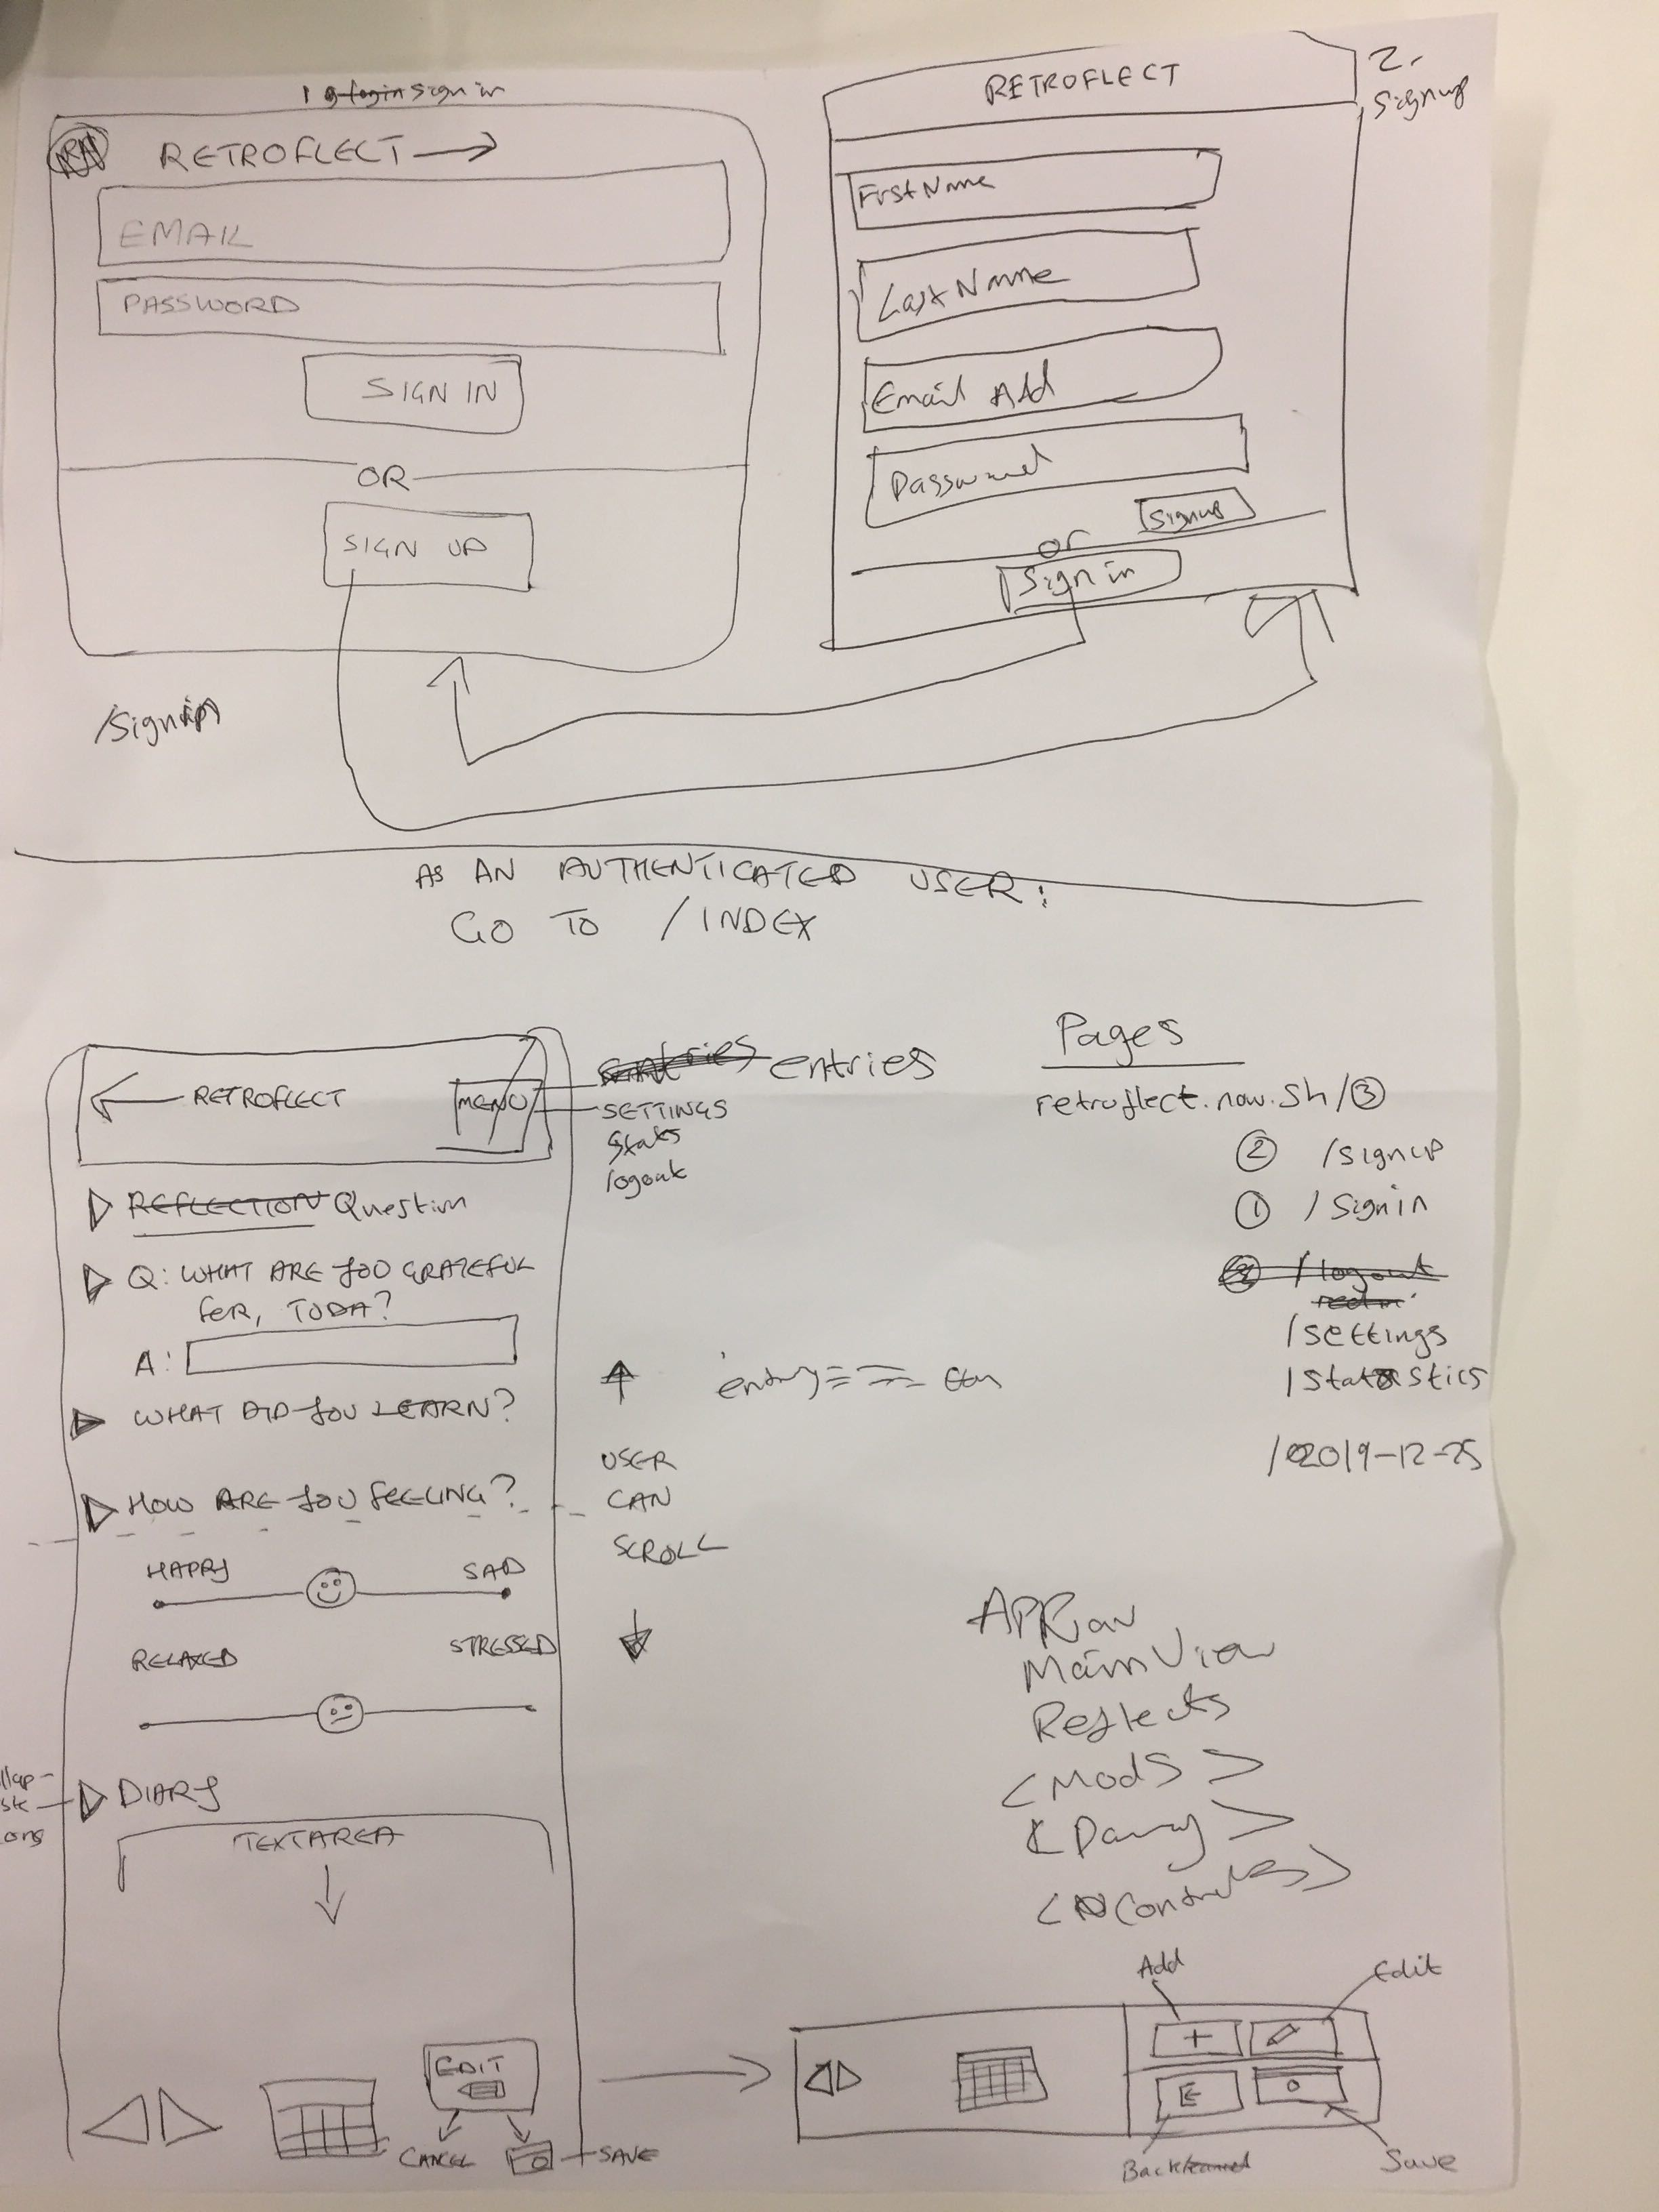 1 sign in
RETROFLECT
EMAIL
PASSWORD
SIGN IN
OR
SIGN UP
RETROFLECT
2.
Signup
FirstName
LastName
Email Add
Password
Signup
or
Sign in
AS AN AUTHENTICATED USER:
GO TO /INDEX
RETROFLECT
MENU
entries
SETTINGS
Stats
logout
REFLECTION Question
Q: WHAT ARE YOU GRATEFUL
FOR, TODAY?
A:
WHAT DID YOU LEARN?
HOW ARE YOU FEELING?
HAPPY
SAD
RELAXED
STRESSED
DIARY
TEXTAREA
EDIT
CANCEL
SAVE
USER
CAN
SCROLL
Pages
retroflect.now.sh/ 3
2 /signup
1 /signin
/logout
/settings
/statistics
/2019-12-25
MainView
Reflects
<Mods>
Add
Edit
E
Back
Save